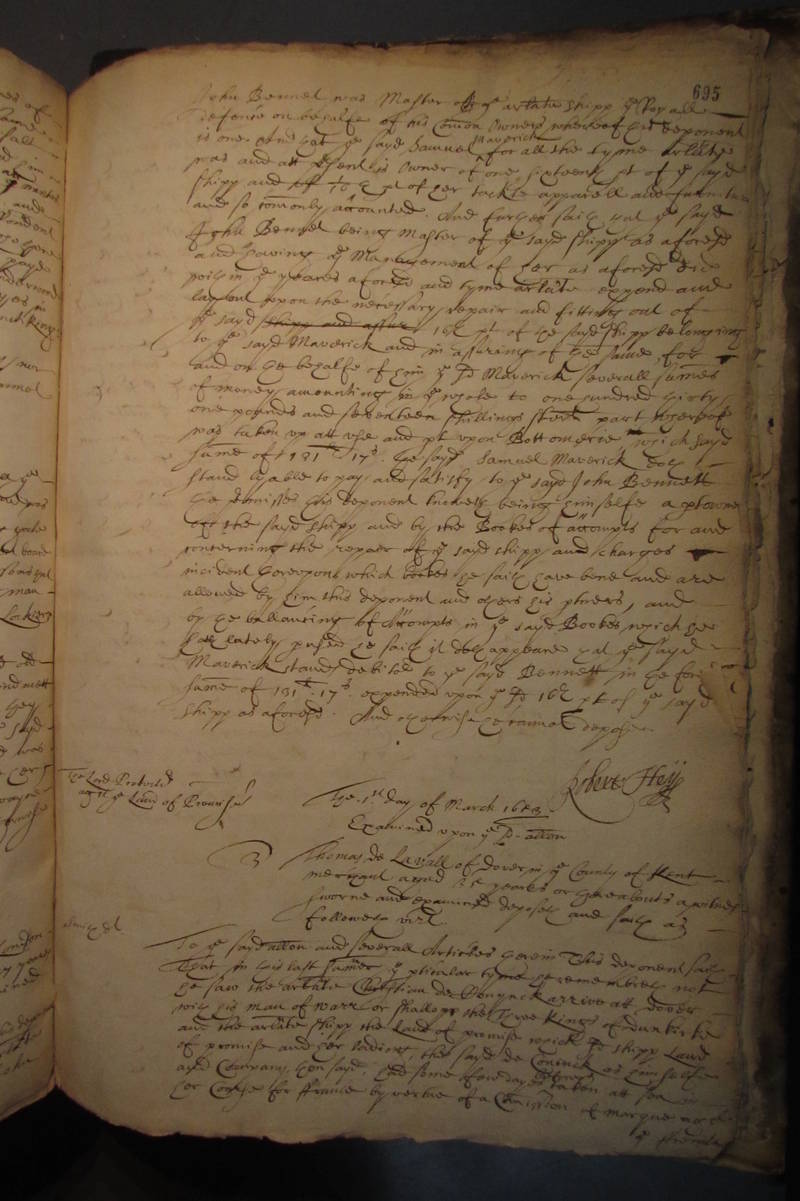 695
John Bennet was Master of ye arlate shipp ye Royall
defence on behalfe of his Comon Owners whereof this deponent
is one And yat ye sayd Samuel Maverick for all the tyme arlate
was and att present is Owner of one sixteenth pt of ye sayd
shipp and pt of her tackle apparell and furniture
and so comonly accounted. And further saith yat ye sayd
John Bennet being Master of ye sayd shipp as aforesd
and having ye Management of her as aforesd did
with in ye yeares aforesd and tyme arlate expend and
layout upon the necessary repair and fitting out of
ye sayd shipp and assur 16th pt of the sayd shipp belonging
to ye sayd Maverick and in assuring of the same, for
and on the behalfe of him ye sd Maverick severall summes
of money amounting in ye whole to one hundred thirty
one pounds and seventeen shillings sterl part whereof
was taken up att use and pt upon Bottomerie which sayd
summe of 131li 17s the sayd Samuel Maverick doth
stand lyable to pay and satisfy to ye sayd John Bennett
The premisses this deponent knoweth being himselfe a ptowner
of the sayd shipp and by the Bookes of accompts for and
concerning the repair of ye sayd shipp and charges
incident thereupon which bookes he saith have bene and are
allowed by him this deponent and others his ptners, and
by the ballancing of Accompts in ye sayd Bookes which hee
hath lately pused he saith it doth appeare yat ye sayd
Maverick stands debitor to ye sayd Bennett in the fore
summe of 131li 17s expended upon ye sd 16th pt of ye sayd
shipp as aforesd. And otherwise he cannot depose.
Robert Hey
The Lord Protector
agst the Land of Promise
The 1st day of March
Examined upon ye sd atton
3
Thomas de Lavall of Dover in ye County of Kent
merchant aged yeares or thereabouts a witnes
sworne and examined deposeth and saith as
followeth vizt.
To ye sayd atton and severall Articles therein This deponent saith
That in this last summer ye pticular tyme he remembreth not
he saw the arlate Christian de Conynck arrive att dover
with his man of warr or shallopp the Three Kings of dunkirke
and the arlate shipp the Land of promise which shipp Land
of promise and her lading, the sayd de Coninck as himselfe
and Company then sayd, had some few dayes before taken att sea in
her Course for ffrance by vertue of a Comission of marque